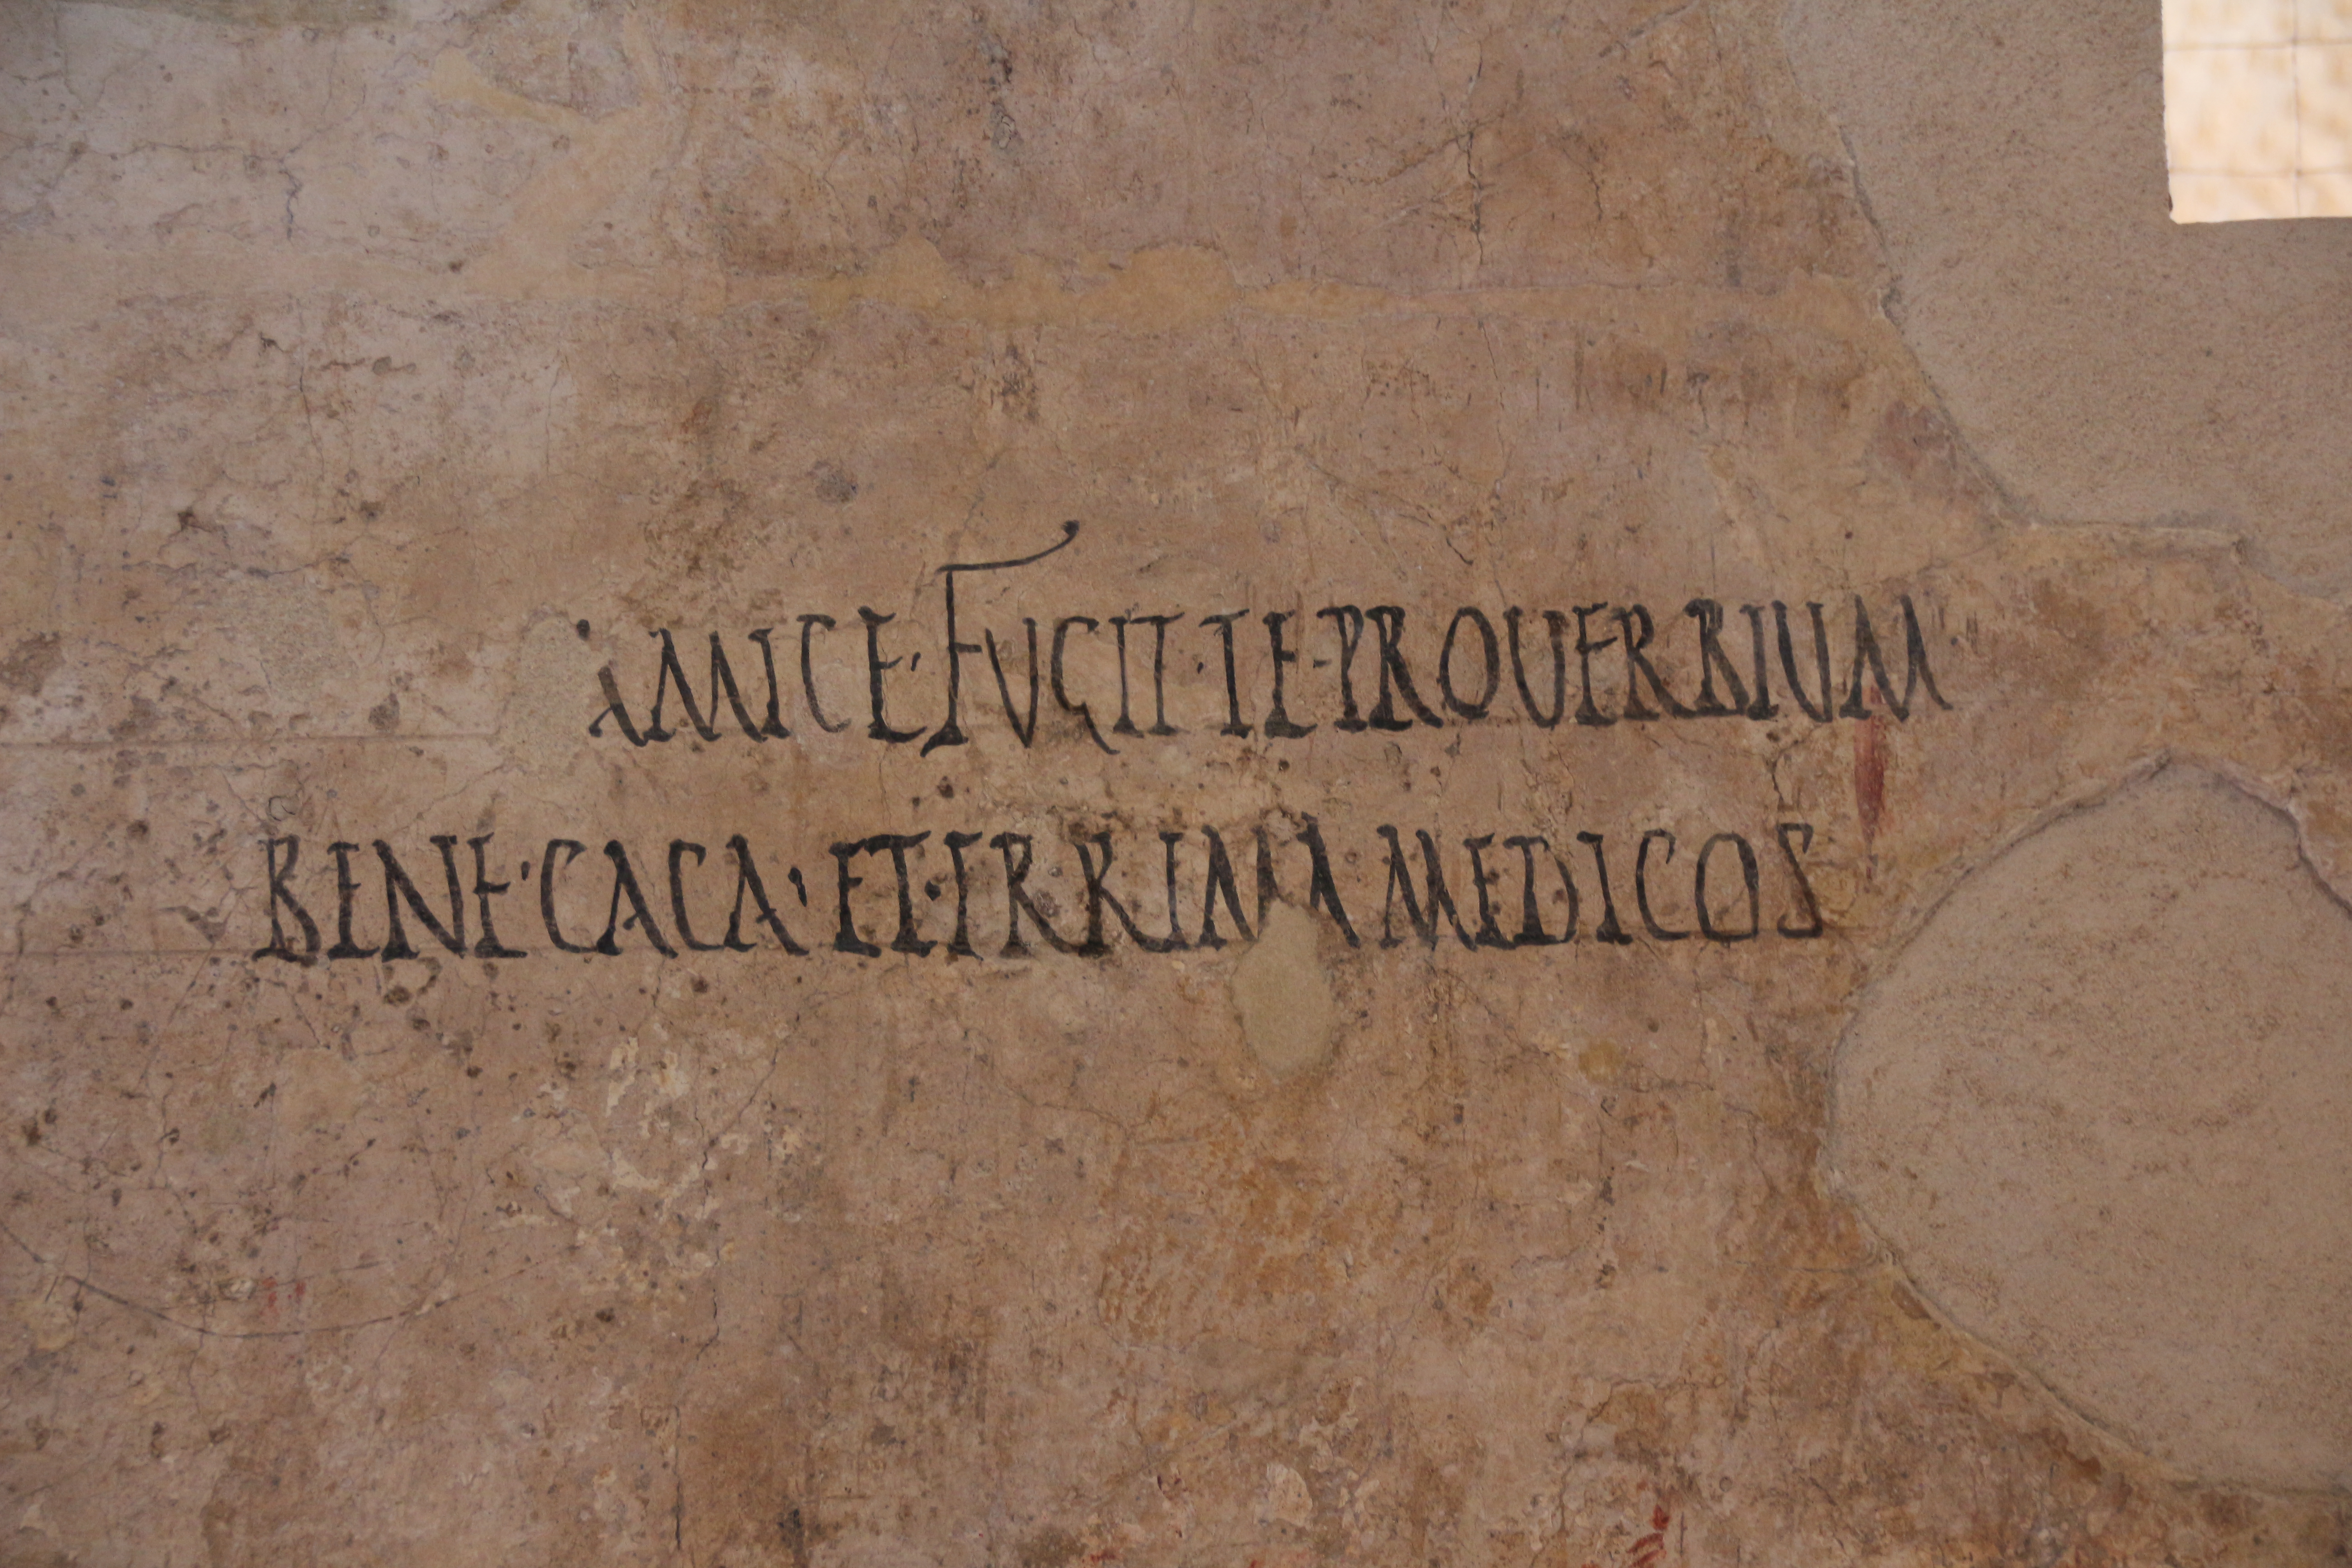 AMICE·FUGIT·TE·PROUERBIUM·
BENE·CACA·ET·IRRIMA MEDICOS